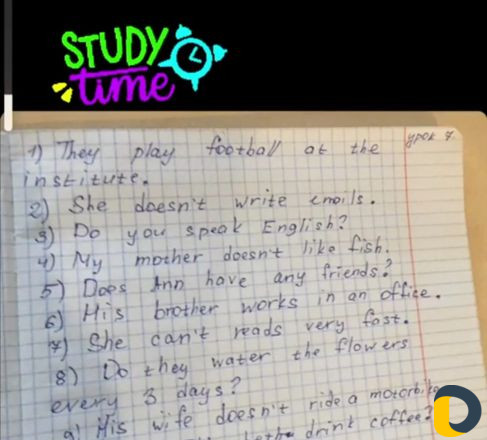 STUDY
time
урок 7
1) They play football at the
institute.
2) She doesn't write emails.
3) Do you speak English?
4) My mother doesn't like fish.
5) Does Ann have any friends?
6) His brother works in an office.
7) She can't reads very fast.
8) Do they water the flowers
every 3 days?
9) His wife doesn't ride a motorbike
drink coffee?